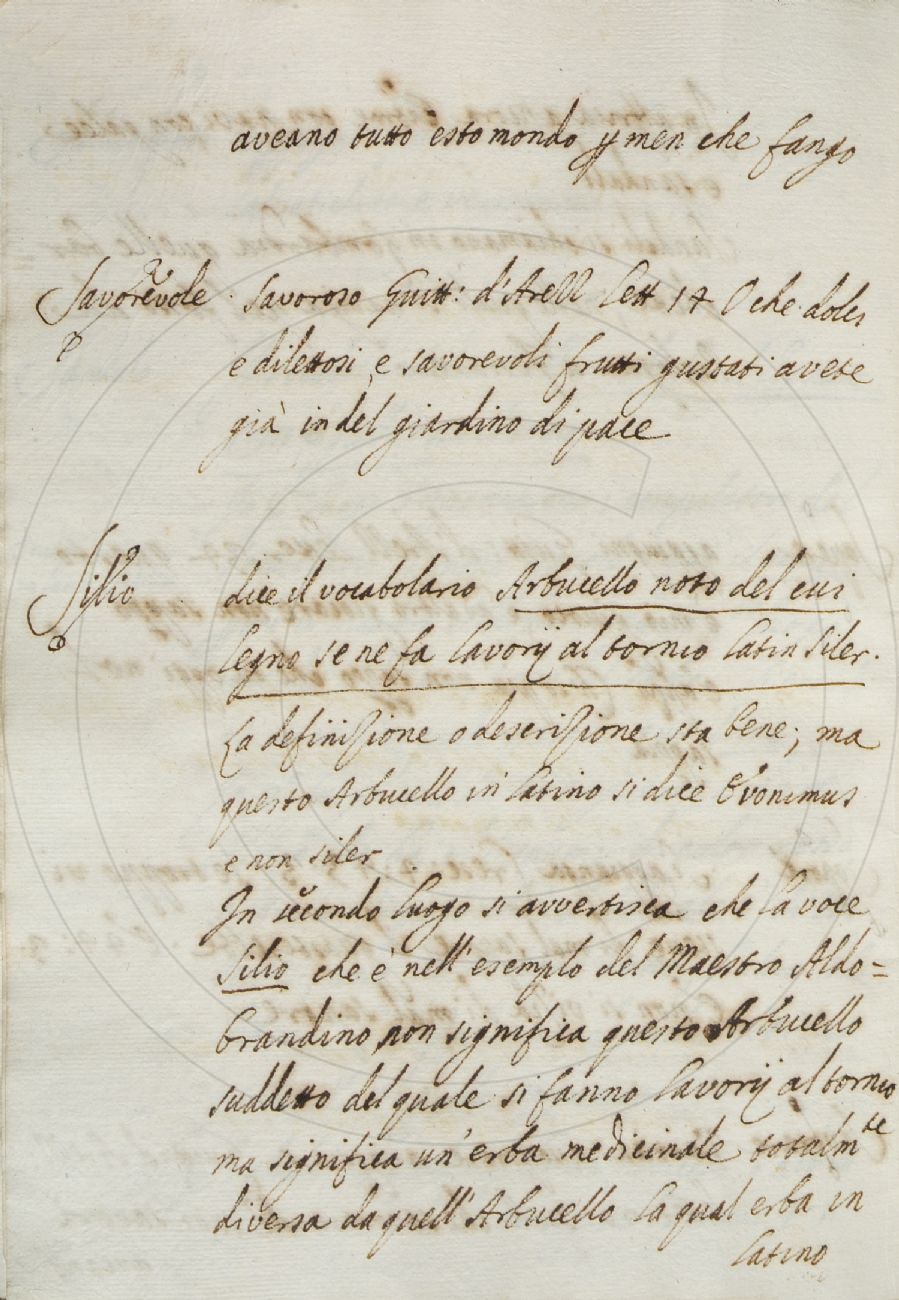 aveano tutto esto mondo p men che fango
Savorevole Savoroso Guitt: d'Arezz Lett 14 O che dolci
e dilettosi e savorevoli frutti gustati avete
già in del giardino di pace
Silio dice il vocabolario Arbucello noto del cui
legno se ne fa lavorij al tornio latin Siler.
La definizione o descrizione sta bene; ma
questo Arbucello in latino si dice Evonimus
e non siler
In secondo luogo si avvertisca che la voce
Silio che è nell'esempio del Maestro Aldo=
brandino non significa questo Arbucello
suddetto del quale si fanno lavorij al tornio
ma significa un'erba medicinale totalmte
diversa da quell'Arbucello la qual erba in
latino